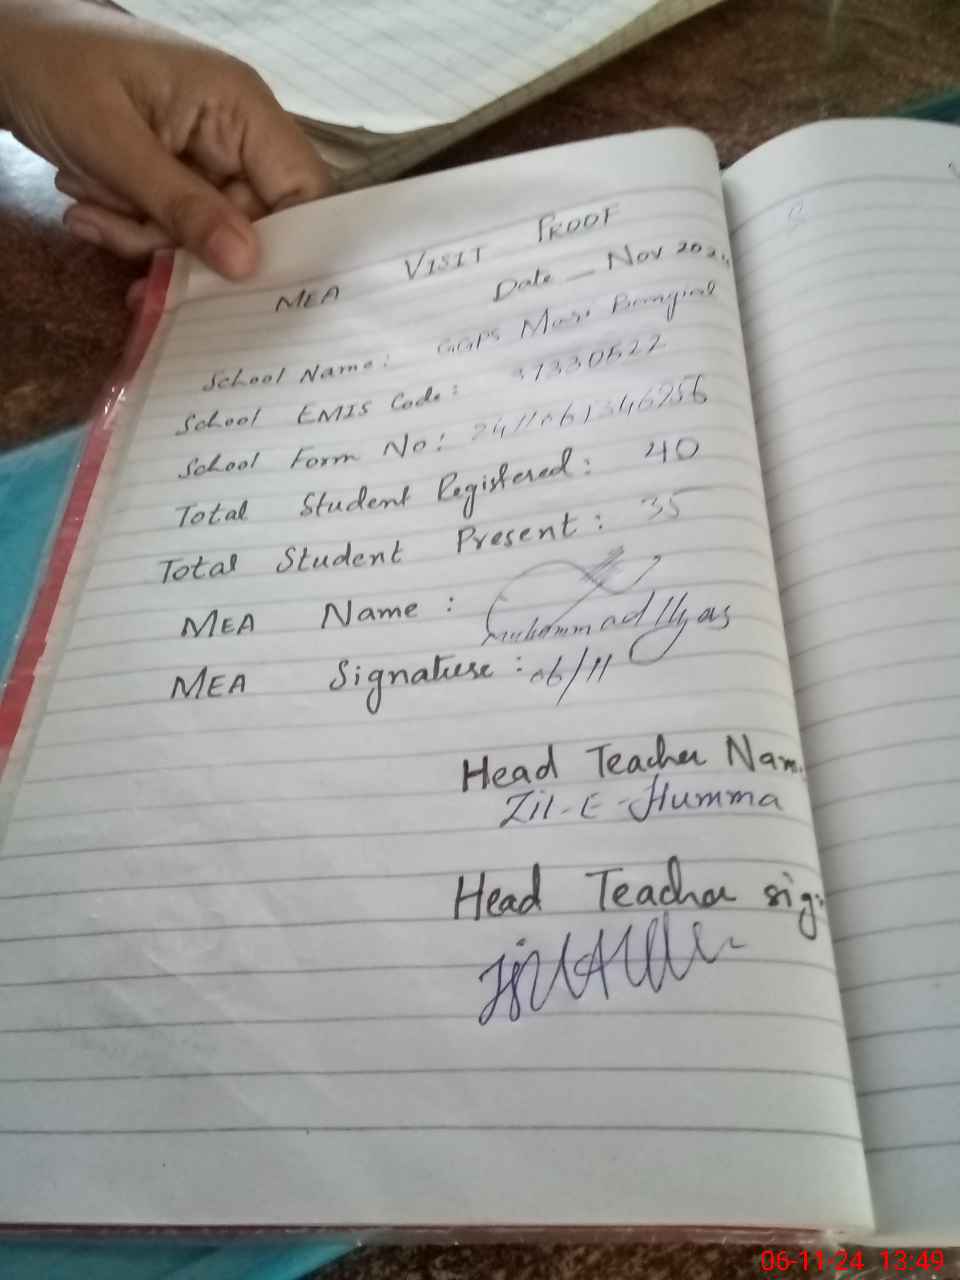 MEA VISIT PROOF
Date — Nov 2024
School Name: GGPS Mari
School EMIS Code: 37330522
School Form No: 2411061346256
Total Student Registered: 40
Total Student Present: 35
MEA Name:
Muhammad Ilyas
MEA Signature: 06/11
Head Teacher Name
Zil-E-Humma
Head Teacher sig:
06-11-24 13:49